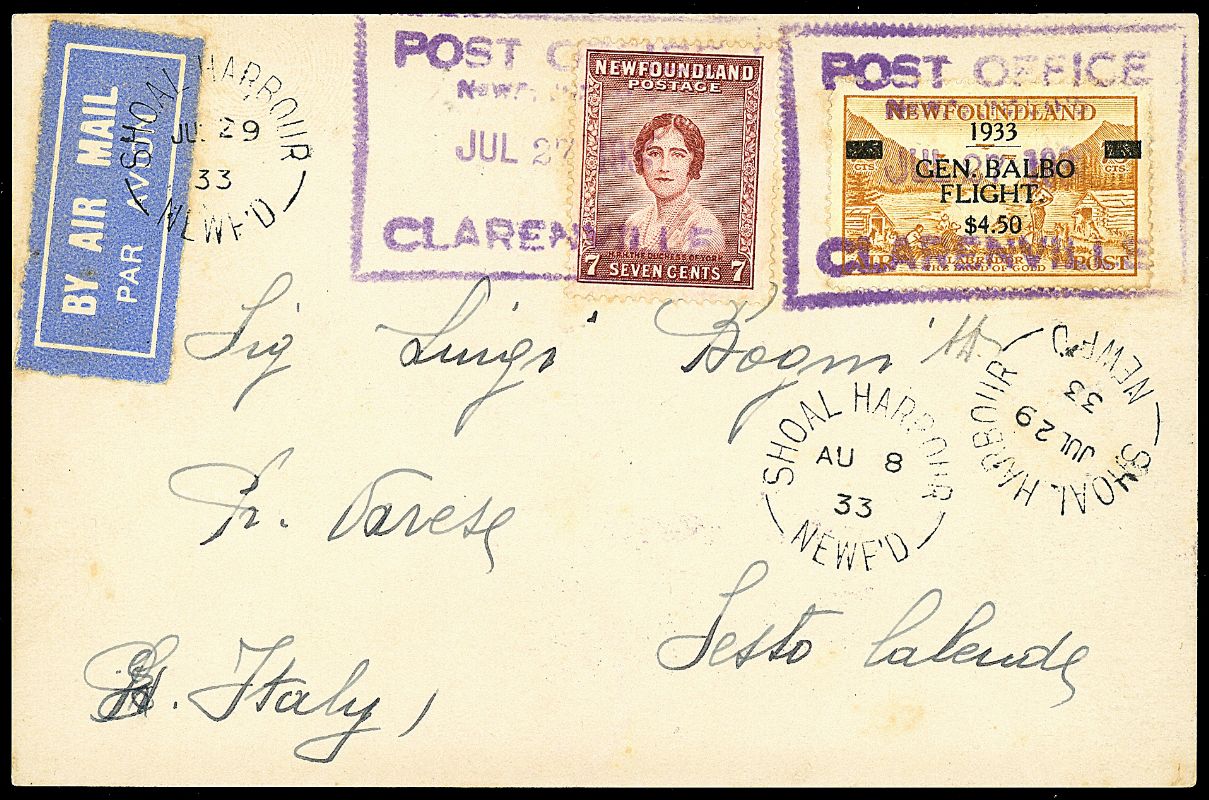 BY AIR MAIL
PAR AVION
SHOAL HARBOUR
JUL 29
33
NEWF'D
POST OFFICE
NEWFOUNDLAND
JUL 27
CLARENVILLE
NEWFOUNDLAND
POSTAGE
H.R.H. THE DUCHESS OF YORK
7 SEVEN CENTS 7
POST OFFICE
NEWFOUNDLAND
JUL 27 193
CLARENVILLE
NEWFOUNDLAND
1933
GEN. BALBO
FLIGHT.
$4.50
LABRADOR
THE LAND OF GOLD
AIR POST
Sig Luigi
SHOAL HARBOUR
JUL 29
33
NEWF'D
SHOAL HARBOUR
AU 8
33
NEWF'D
Pr. Varese
Sesto Calende
Italy